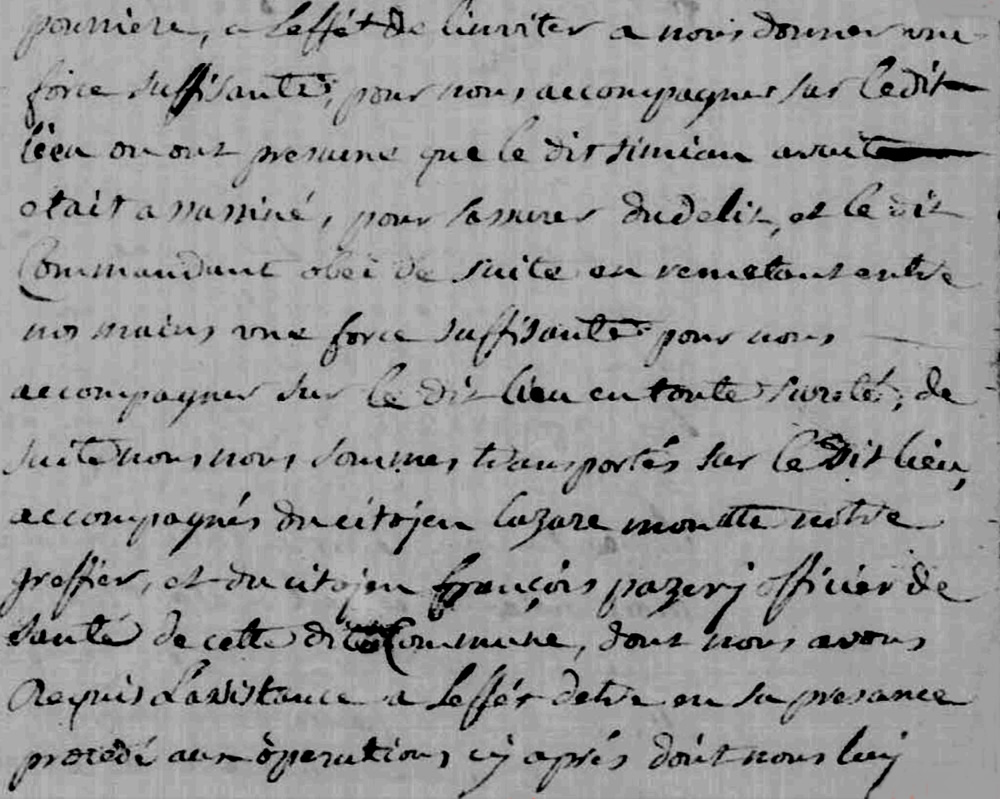 pourriere, a Leffét de linviter a nous donner une
force suffisante, pour nous accompagner sur le dit
lieu ou ont presume que le dit simian
etait assassiné, pour sassurer du delit, et le dit
Commandant obei de suite en remetant entre
nos mains une force suffisante pour nous
accompagner sur le dit lieu en toute sureté, de
suite nous nous sommes transportés sur le dit lieu,
accompagnés du citojen lazare notre
greffier, et du citojen françois pazerj officier de
santé de cette dite Commune, dont nous avons
Requis Lassistance a Leffét detre en sa presance
procédé aux òperations cj aprés dont nous luj